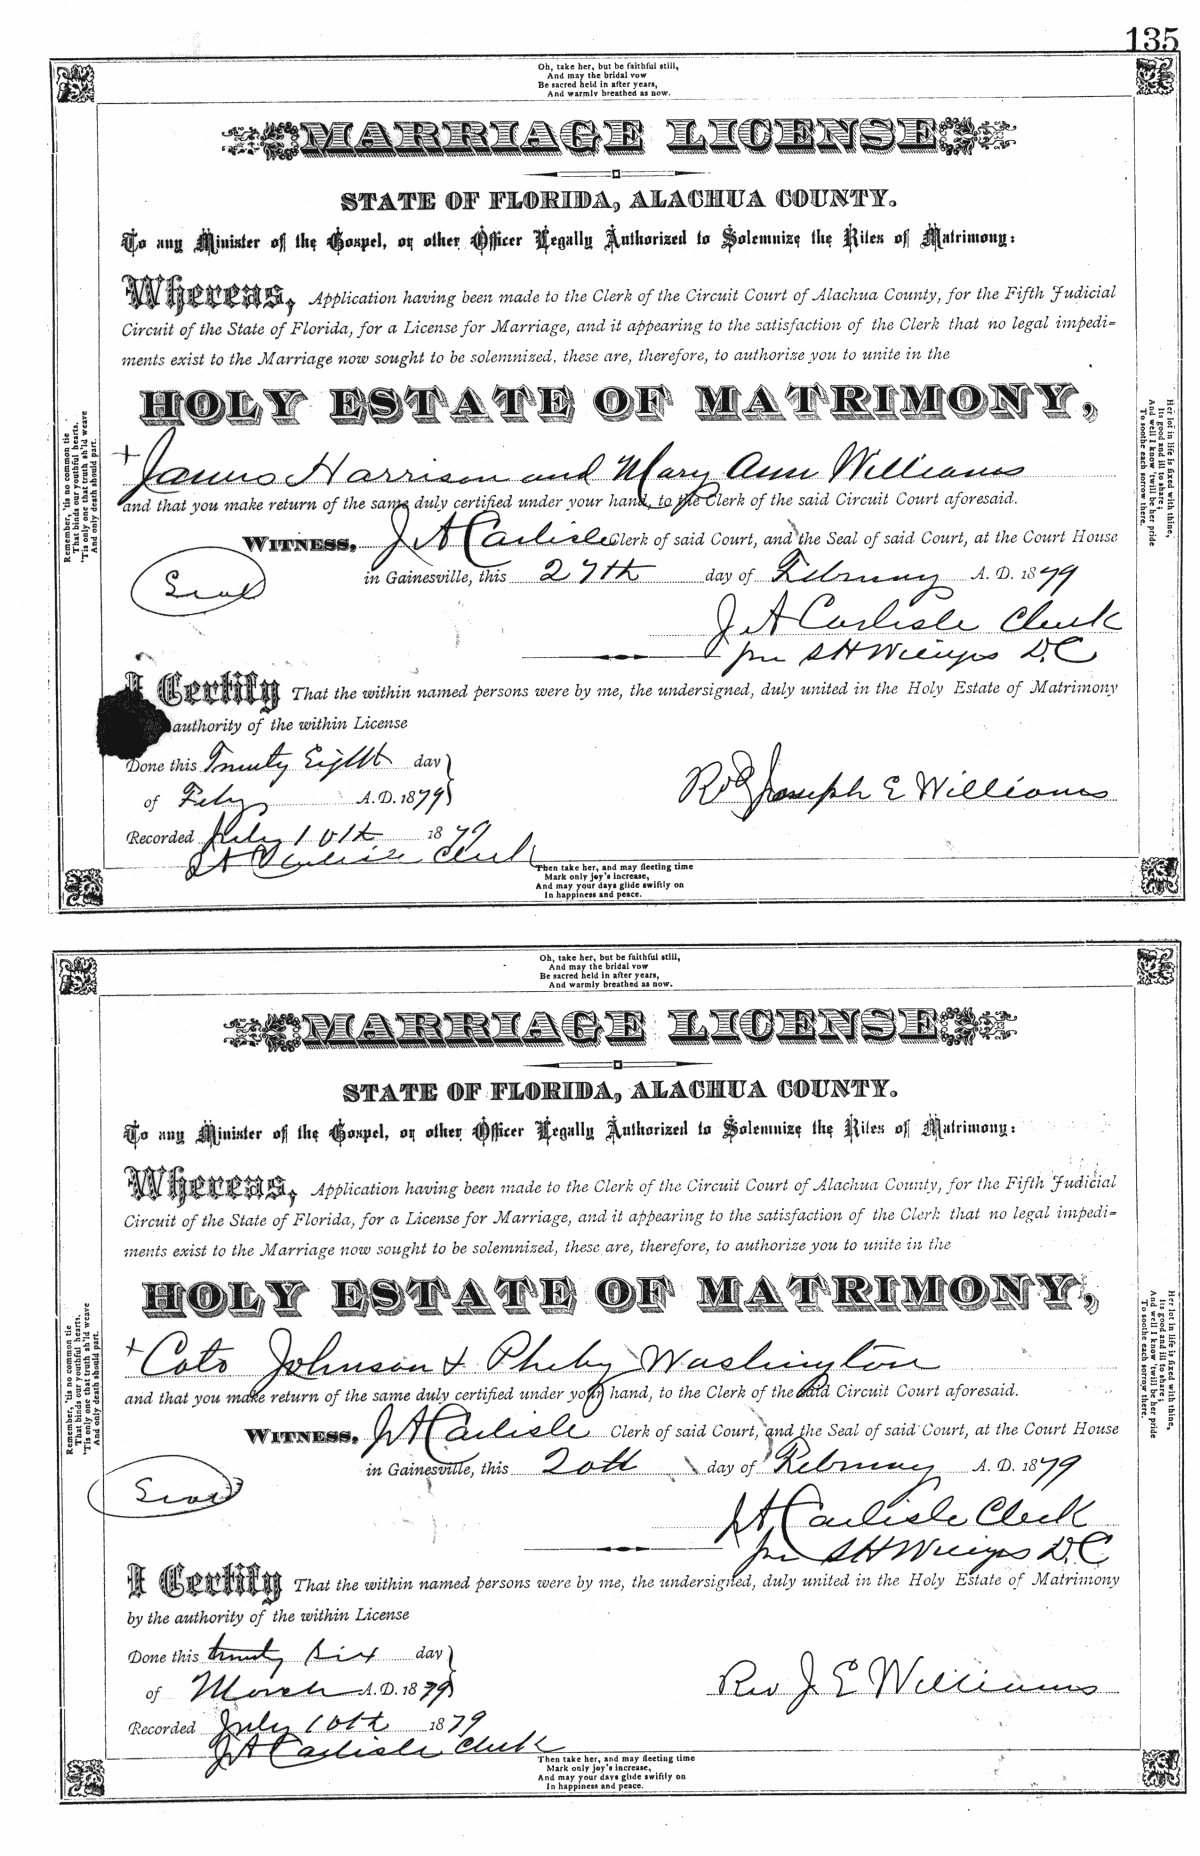 135
Oh, take her, but be faithful still,
And may the bridal vow
Be sacred held in after years,
And warmly breathed as now.
MARRIAGE LICENSE
STATE OF FLORIDA, ALACHUA COUNTY.
To any Minister of the Gospel, or other Officer Legally Authorized to Solemnize the Rites of Matrimony:
Whereas, Application having been made to the Clerk of the Circuit Court of Alachua County, for the Fifth Judicial
Circuit of the State of Florida, for a License for Marriage, and it appearing to the satisfaction of the Clerk that no legal impedi-
ments exist to the Marriage now sought to be solemnized, these are, therefore, to authorize you to unite in the
HOLY ESTATE OF MATRIMONY,
+ James Harrison and Mary Ann Williams
and that you make return of the same duly certified under your hand, to the Clerk of the said Circuit Court aforesaid.
WITNESS, J A Carlisle Clerk of said Court, and the Seal of said Court, at the Court House
Seal
in Gainesville, this 27th day of February A. D. 1879
J A Carlisle Clerk
per S H D.C
I Certify That the within named persons were by me, the undersigned, duly united in the Holy Estate of Matrimony
authority of the within License
Done this Twenty Eight day
of Feby A.D. 1879
Rev Joseph E Williams
Recorded July 10th 1879
J A Carlisle Clerk
Then take her, and may fleeting time
Mark only joy's increase,
And may your days glide swiftly on
In happiness and peace.
Remember, 'tis no common tie
That binds our youthful hearts,
'Tis only one that truth sh'ld weave
And only death should part.
Her lot in life is fixed with thine,
Its good and ill to share;
And well I know 'twill be her pride
To soothe each sorrow there.
Oh, take her, but be faithful still,
And may the bridal vow
Be sacred held in after years,
And warmly breathed as now.
MARRIAGE LICENSE
STATE OF FLORIDA, ALACHUA COUNTY.
To any Minister of the Gospel, or other Officer Legally Authorized to Solemnize the Rites of Matrimony:
Whereas, Application having been made to the Clerk of the Circuit Court of Alachua County, for the Fifth Judicial
Circuit of the State of Florida, for a License for Marriage, and it appearing to the satisfaction of the Clerk that no legal impedi-
ments exist to the Marriage now sought to be solemnized, these are, therefore, to authorize you to unite in the
HOLY ESTATE OF MATRIMONY,
+ Cato Johnson & Pheby Washington
and that you make return of the same duly certified under your hand, to the Clerk of the said Circuit Court aforesaid.
WITNESS, J A Carlisle Clerk of said Court, and the Seal of said Court, at the Court House
Seal
in Gainesville, this 20th day of February A. D. 1879
J A Carlisle Clerk
per S H D.C
I Certify That the within named persons were by me, the undersigned, duly united in the Holy Estate of Matrimony
by the authority of the within License
Done this twenty six day
of March A.D. 1879
Rev J E Williams
Recorded July 10th 1879
J A Carlisle Clerk
Then take her, and may fleeting time
Mark only joy's increase,
And may your days glide swiftly on
In happiness and peace.
Remember, 'tis no common tie
That binds our youthful hearts.
'Tis only one that truth sh'ld weave
And only death should part.
Her lot in life is fixed with thine,
Its good and ill to share;
And well I know 'twill be her pride
To soothe each sorrow there.